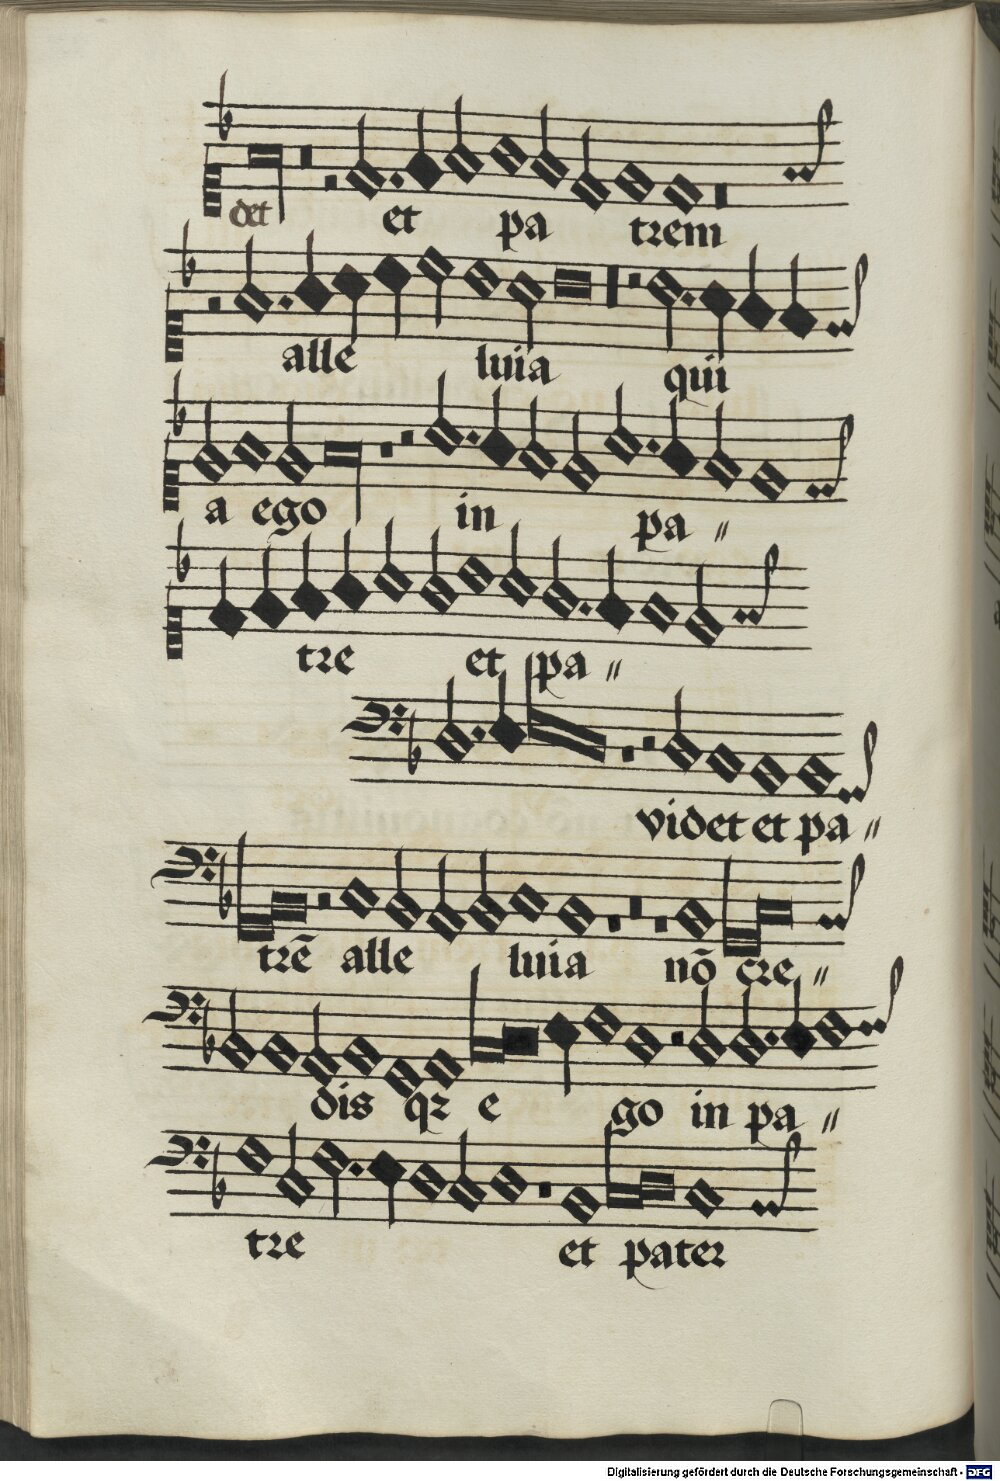 det et pa trem
alle luia qui
a ego in pa〃
tre et pa〃
videt et pa〃
trē alle luia nō cre〃
dis qꝛ e go in pa〃
tre et pater
Digitalisierung gefördert durch die Deutsche Forschungsgemeinschaft - DFG